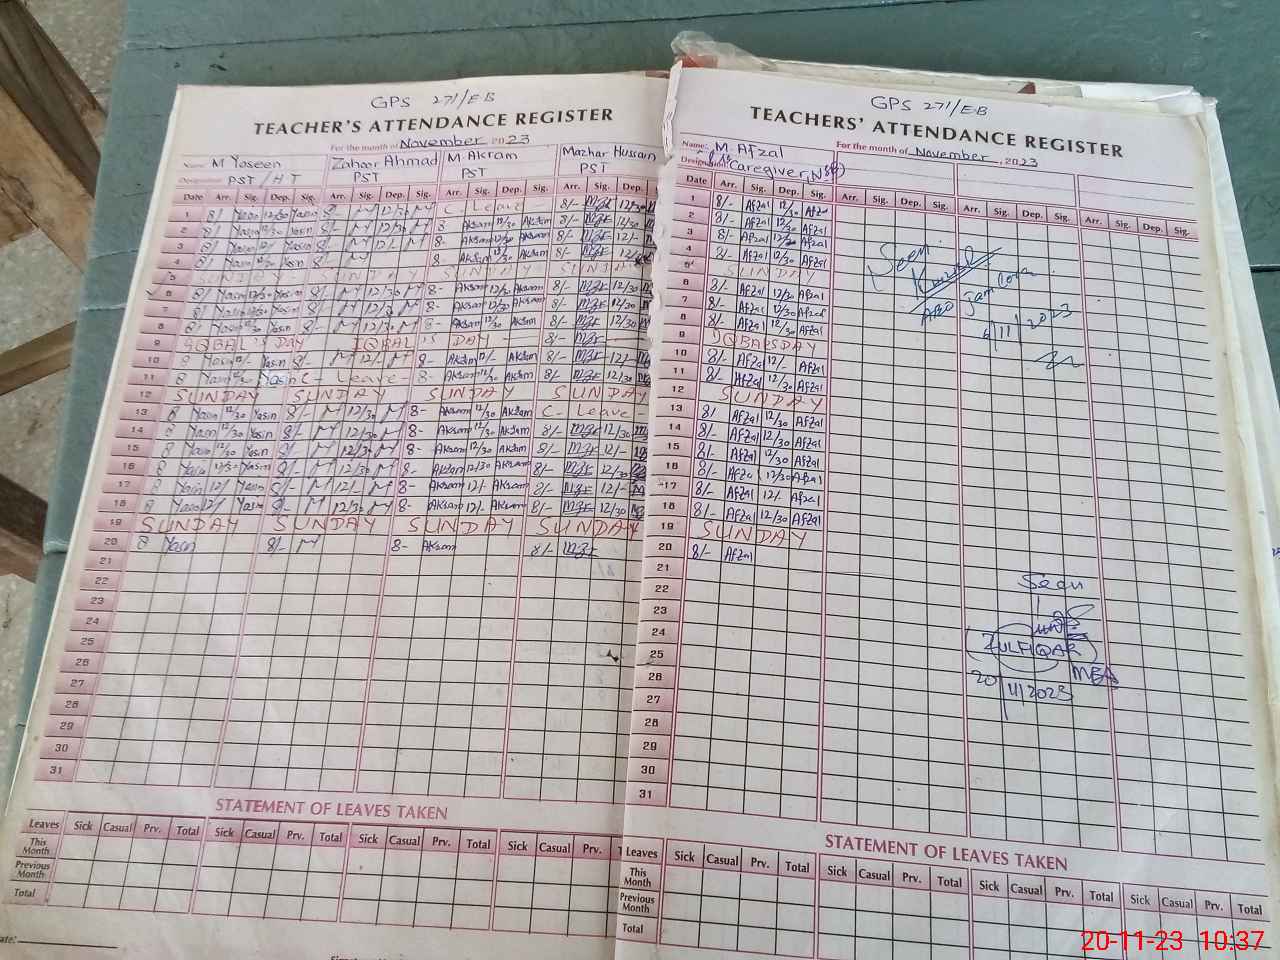 GPS 271/EB
TEACHER'S ATTENDANCE REGISTER
For the month of November 2023
Name: M Yaseen Zahoor Ahmad M. Akram Mazhar Hussain
Designation: PST / HT PST PST PST
Date Arr. Sig. Dep. Sig. Arr. Sig. Dep. Sig. Arr. Sig. Dep. Sig. Arr. Sig. Dep.
1 8/ Yasin 12/30 Yasin 8/- 12/30 C - Leave - 8/- 12/30
2 8/ Yasin 12/30 Yasin 8/- 12/30 8 Akram 12/30 Akram 8/- 12/30
3 8/ Yasin 12/ Yasin 8/- 12/- 8 Akram 12/30 Akram 8/- 12/-
4 8/ Yasin 12/30 Yasin 8/- 12/30 8 Akram 12/30 Akram 8/- 12/30
5 SUNDAY SUNDAY SUNDAY SUNDAY
6 8/ Yasin 12/30 Yasin 8/- 12/30 8- Akram 12/30 Akram 8/- 12/30
7 8/ Yasin 12/30 Yasin 8/- 12/30 8- Akram 12/30 Akram 8/- 12/30
8 8/ Yasin 12/30 Yasin 8/- 12/30 8- Akram 12/30 Akram 8/- 12/30
9 IQBAL'S DAY IQBAL'S DAY 8/-
10 8 Yasin 12/- Yasin 8/- 12/- 8- Akram 12/- Akram 8/- 12/-
11 8 Yasin 12/30 Yasin C - Leave - 8- Akram 12/30 Akram 8/- 12/30
12 SUNDAY SUNDAY SUNDAY SUNDAY
13 8 Yasin 12/30 Yasin 8/- 12/30 8- Akram 12/30 Akram C - Leave -
14 8 Yasin 12/30 Yasin 8/- 12/30 8- Akram 12/30 Akram 8/- 12/30
15 8 Yasin 12/30 Yasin 8/- 12/30 8- Akram 12/30 Akram 8/- 12/-
16 8 Yasin 12/30 Yasin 8/- 12/30 8- Akram 12/30 Akram 8/- 12/30
17 8 Yasin 12/ Yasin 8/- 12/- 8- Akram 12/- Akram 8/- 12/-
18 8 Yasin 12/ Yasin 8/- 12/30 8- Akram 12/- Akram 8/- 12/30
19 SUNDAY SUNDAY SUNDAY SUNDAY
20 8 Yasin 8/- 8- Akram 8/-
21
22
23
24
25
26
27
28
29
30
31
STATEMENT OF LEAVES TAKEN
Leaves Sick Casual Prv. Total Sick Casual Prv. Total Sick Casual Prv. Total Sick Casual Prv.
This Month
Previous Month
Total
GPS 271/EB
TEACHERS' ATTENDANCE REGISTER
Name: M. Afzal For the month of November, 2023
Designation: Caregiver (NSB)
Date Arr. Sig. Dep. Sig. Arr. Sig. Dep. Sig. Arr. Sig. Dep. Sig. Arr. Sig. Dep. Sig.
1 8/- Afzal 12/30 Afzal
2 8/- Afzal 12/30 Afzal
3 8/- Afzal 12/30 Afzal
4 8/- Afzal 12/30 Afzal
5 SUNDAY
6 8/- Afzal 12/30 Afzal
7 8/- Afzal 12/30 Afzal
8 8/- Afzal 12/30 Afzal
9 IQBAL'S DAY
10 8/- Afzal 12/- Afzal
11 8/- Afzal 12/30 Afzal
12 SUNDAY
13 8/- Afzal 12/30 Afzal
14 8/- Afzal 12/30 Afzal
15 8/- Afzal 12/30 Afzal
16 8/- Afzal 12/30 Afzal
17 8/- Afzal 12/- Afzal
18 8/- Afzal 12/30 Afzal
19 SUNDAY
20 8/- Afzal
21
22
23
24
25
26
27
28
29
30
31
Seen
AEO
6/11/2023
Seen
(ZULFIQAR)
MEA
20/11/2023
STATEMENT OF LEAVES TAKEN
Leaves Sick Casual Prv. Total Sick Casual Prv. Total Sick Casual Prv. Total Sick Casual Prv. Total
This Month
Previous Month
Total
20-11-23 10:37